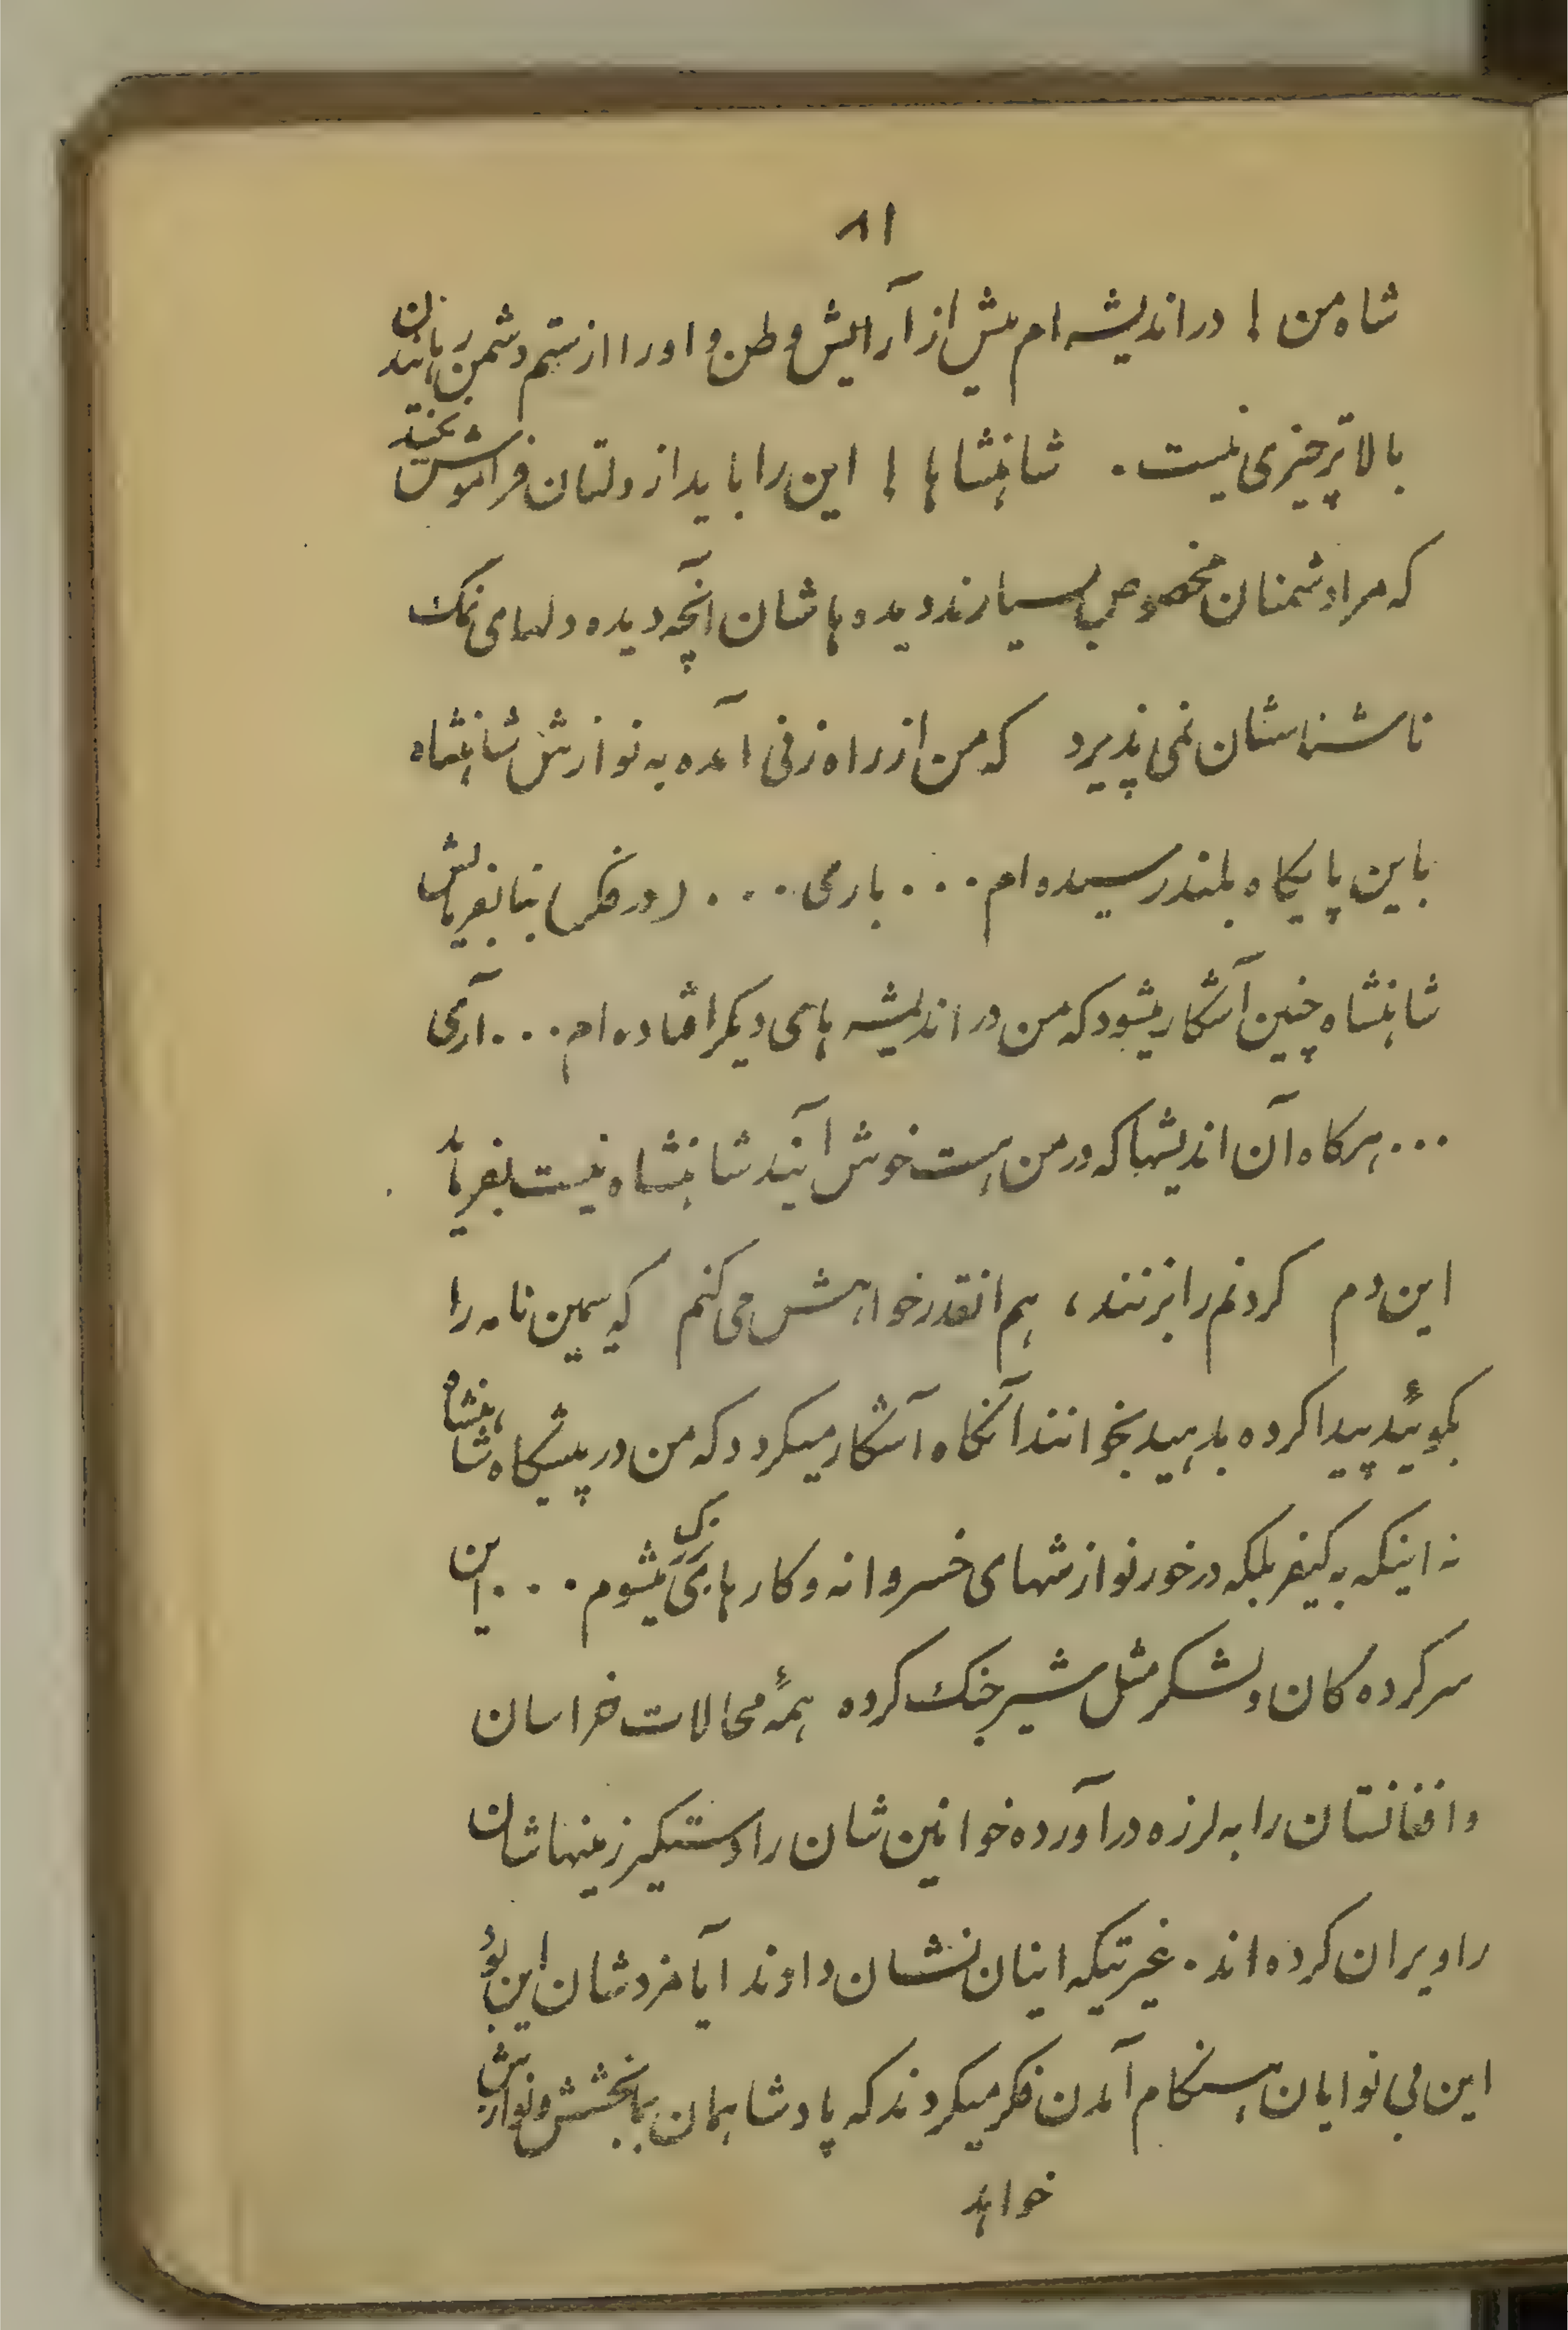 ۸۱
شاه من ! در اندیشه ام بیش از آرایش وطن و اورا از ستم دشمن رهانیدن
بالاتر چیزی نیست . شاهنشاها ! این را باید از دلتان فراموش نکنید
که مرا دشمنان مخصوص بسیارند دیده هاشان آنچه دیده دلهای نمک
ناشناسشان نمی پذیرد که من از راه زنی آمده به نوازش شاهنشاه
باین پایکاه بلند رسیده ام ... باری ... (در فکر) بنا بفرمایش
شاهنشاه چنین آشکار میشود که من در اندیشه های دیکر افتاده ام ... آری
... هرکاه آن اندیشها که در من هست خوش آیند شاهنشاه نیست بفرمائید
این دم کردنم را بزنند ، هم انقدر خواهش می کنم که همین نامه را
بکوئید پیدا کرده بدهید بخوانند آنکاه آشکار میکردد که من در پیشکاه شاهنشاه
نه اینکه به کیفر بلکه در خور نوازشهای خسروانه و کارهای بزرک میشوم ... این
سرکرده کان و لشکر مثل شیر جنک کرده همهٔ محالات خراسان
و افغانستان را به لرزه درآورده خوانین شان را دستکیر زمینهاشان
را ویران کرده اند . غیرتیکه اینان نشان دادند آیا مزدشان این بود
این بی نوایان هنکام آمدن فکر میکردند که پادشاهمان بما بخشش و نوازش
خواهد